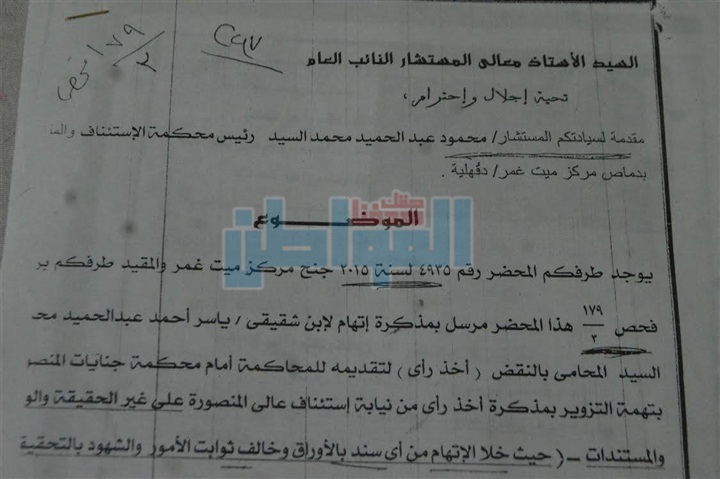 ٢٢٩٧
١٧٩/٢ فحص
السيد الأستاذ معالى المستشار النائب العام
تحية إجلال وإحترام ،
مقدمة لسيادتكم المستشار/ محمود عبد الحميد محمد السيد رئيس محكمة الإستئناف والمق
بدماص مركز ميت غمر/ دقهلية .
الموضوع
المواطن
يوجد طرفكم المحضر رقم ٤٩٣٥ لسنة ٢٠١٥ جنح مركز ميت غمر والمقيد طرفكم بر
فحص ١٧٩/٢ هذا المحضر مرسل بمذكرة إتهام لإبن شقيقى / ياسر أحمد عبدالحميد مح
السيد المحامى بالنقض ( أخذ رأى ) لتقديمه للمحاكمة أمام محكمة جنايات المنصو
بتهمة التزوير بمذكرة أخذ رأى من نيابة إستئناف عالى المنصورة على غير الحقيقة والو
والمستندات – ( حيث خلا الإتهام من أى سند بالأوراق وخالف ثوابت الأمور والشهود بالتحقيق